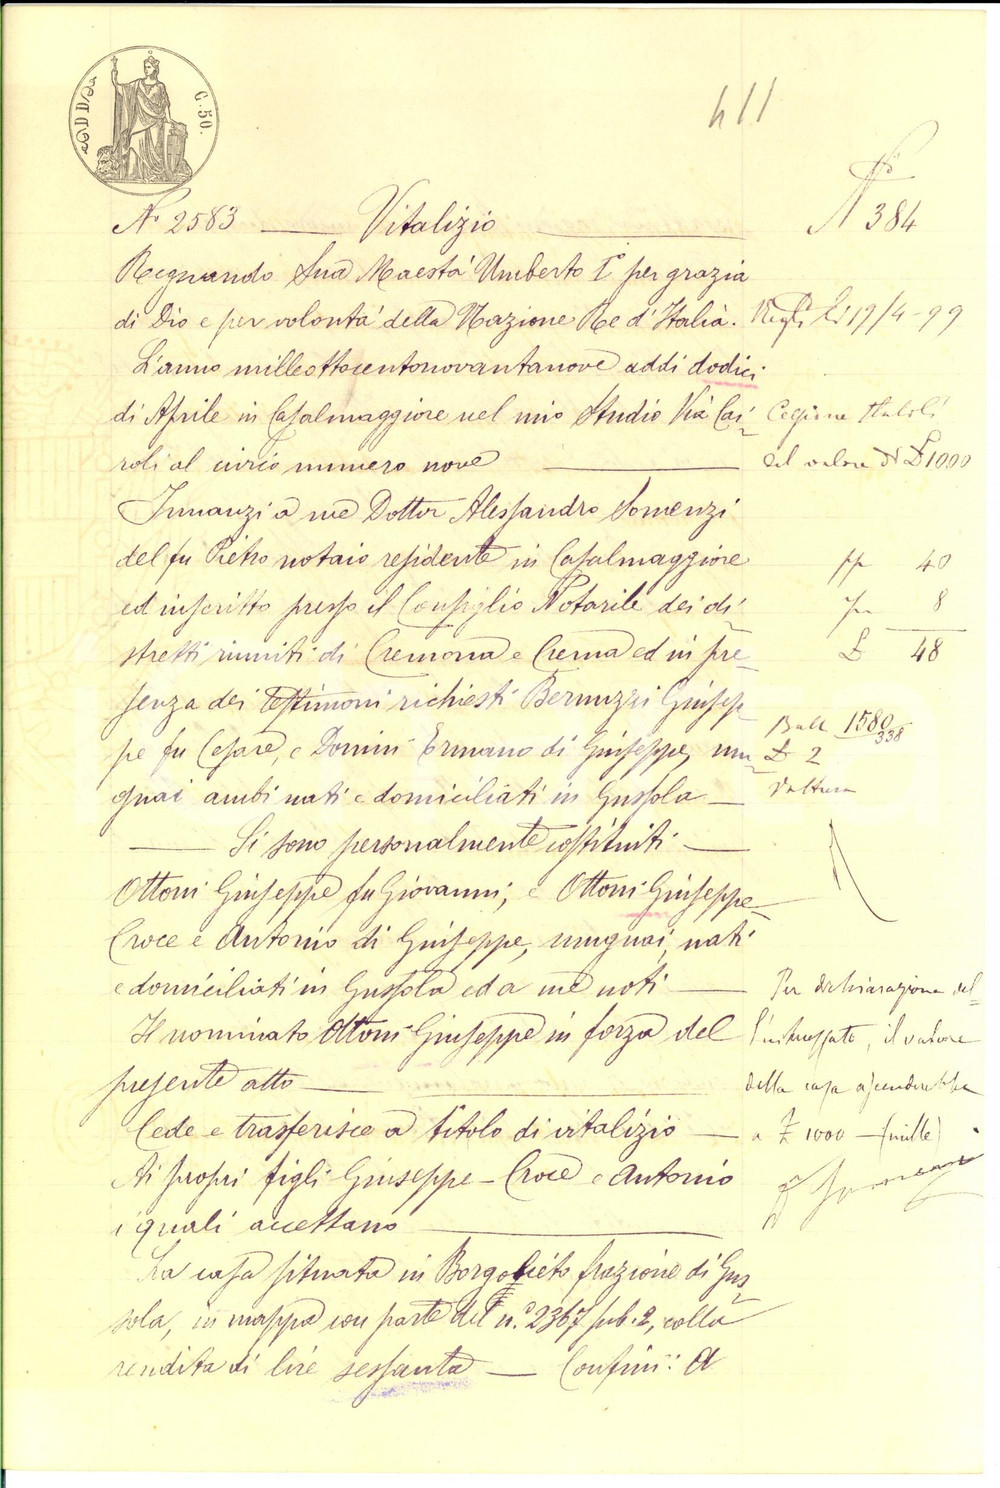 C. 50.
411
N° 2583 Vitalizio
N° 384
Regnando Sua Maestà Umberto I° per grazia
di Dio e per volontà della Nazione Re d'Italia.
Li 19/4-99
L'anno milleottocentonovantanove addì dodici
di Aprile in Casalmaggiore nel mio Studio Via Cai=
roli al civico numero nove
Cessione Stabili
del valore di £ 1000
Innanzi a me Dottor Alessandro Somenzi
del fu Pietro notaio residente in Casalmaggiore
ed inscritto presso il Consiglio Notarile dei di=
stretti riuniti di Cremona e Crema ed in pre=
senza dei testimoni richiesti Bernuzzi Giusep=
pe fu Cesare, e Domini Ermano di Giuseppe, mu=
gnai ambi nati e domiciliati in Gussola
pp 40
8
£ 48
Boll 1580/338
£ 2
Si sono personalmente costituiti
Ottoni Giuseppe fu Giovanni, e Ottoni Giuseppe=
Croce e Antonio di Giuseppe, mugnai, nati
e domiciliati in Gussola ed a me noti
Il nominato Ottoni Giuseppe in forza del
presente atto
Cede e trasferisce a titolo di vitalizio
Ai propri figli Giuseppe-Croce e Antonio
i quali accettano
La casa situata in Borgolieto frazione di Gus=
sola, in mappa con parte del n.° 2367 sub. 2, colla
rendita di lire sessanta Confini: A
Per dichiarazione del=
l'interessato, il valore
della casa ascenderebbe
a £ 1000 - (mille)